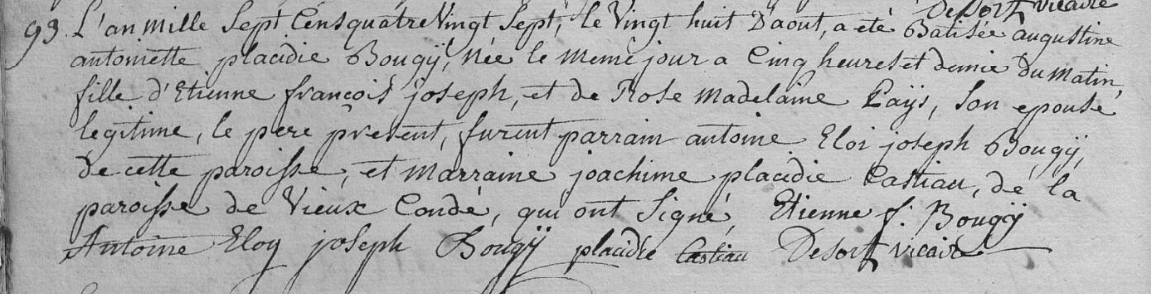 Desort vicaire
93. L'an mille Sept Cens quatre Vingt Sept, le Vingt huit D'aout, a eté Batisée augustine
antoinette placidie Bougÿ, Née le meme jour a Cinq heures et demie Du matin,
fille d'Etienne françois joseph, et de Rose Madelaine Païs, Son epouse
legitime, le pere present, furent parrain antoine Eloi joseph Bougÿ,
de cette paroisse, et Marraine joachime placidie Castiau, de la
paroisse de Vieux Condé, qui ont Signé, Etienne f. Bougÿ
Antoine Eloy joseph Bougÿ placidie Castiau Desort vicaire